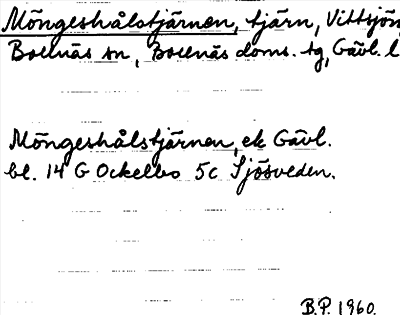 Möngeshålstjärnen, tjärn, Vittsjön,
Bollnäs sn, Bollnäs doms. tg, Gävl. l
Möngeshålstjärnen, ek Gävl.
bl. 14 G Ockelbo 5c Sjösveden.
B.P. 1960.